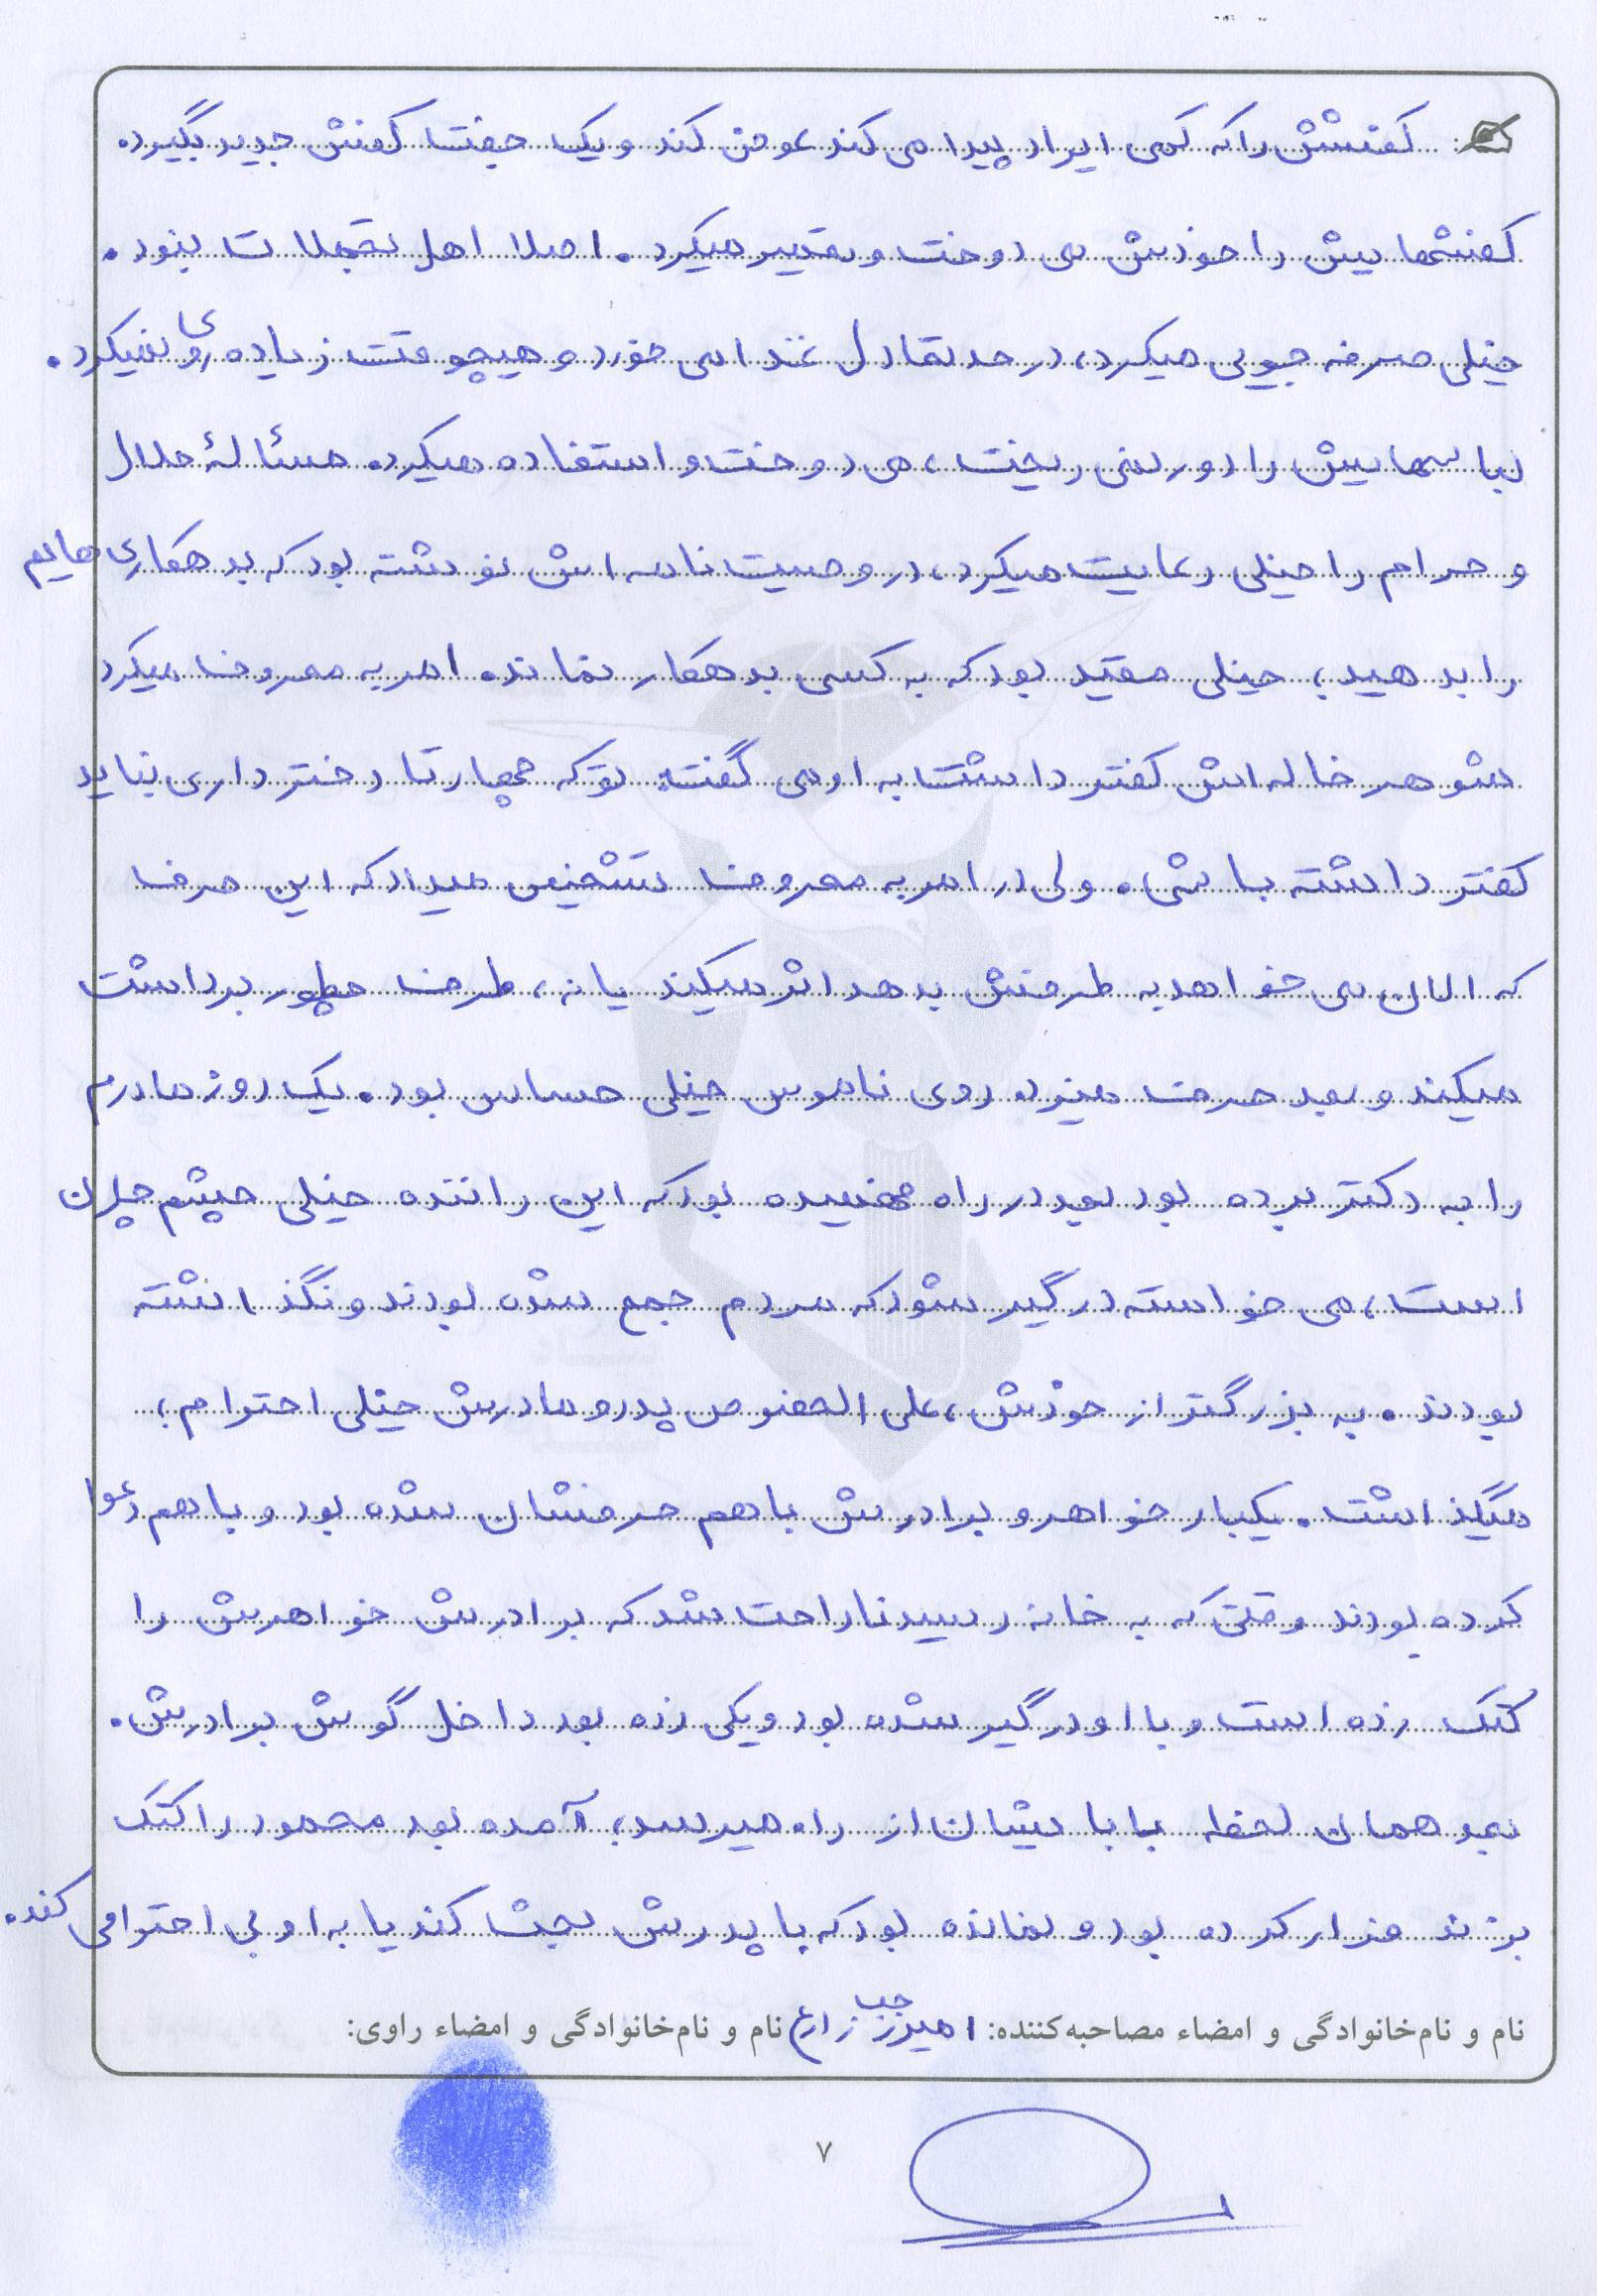 کفشش را که کمی ایراد پیدا می کند عوض کند و یک جفت کفش جدید بگیرد.
کفشهایش را خودش می دوخت و تعمیر میکرد. اصلا اهل تجملات نبود.
خیلی صرفه جویی میکرد، در حد تعادل غذا می خورد و هیچوقت زیاده روی نمیکرد.
لباسهایش را دور نمی ریخت، می دوخت و استفاده میکرد. مسئالهٔ حلال
و حرام را خیلی رعایت میکرد، در وصیت نامه اش نوشته بود که بدهکاری هایم
را بدهید، خیلی مقیّد بود که به کسی بدهکار نماند. امر به معروف میکرد
شوهر خاله اش کفتر داشت به او می گفت تو که چهار تا دختر داری نباید
کفتر داشته باشی. ولی در امر به معروف تشخیص میداد که این حرف
که الان می خواهد به طرفش بدهد اثر میکند یا نه، طرف چطور برداشت
میکند و بعد حرف میزد. روی ناموس خیلی حساس بود. یک روز مادرم
را به دکتر برده بود بعد در راه فهمیده بود که این راننده خیلی چشم چران
است، می خواسته درگیر شود که مردم جمع شده بودند و نگذاشته
بودند. به بزرگتر از خودش، علی الخصوص پدر و مادرش خیلی احترام،
میگذاشت. یکبار خواهر و برادرش با هم حرفشان شده بود و با هم دعوا
کرده بودند وقتی که به خانه رسید ناراحت شد که برادرش خواهرش را
کتک زده است و با او درگیر شده بود و یکی زده بود داخل گوش برادرش.
بعد همان لحظه باباشان از راه میرسد، آمده بود محمود را کتک
بزند فرار کرده بود و نمانده بود که با پدرش بحث کند یا به او بی احترامی کند.
نام و نام‌خانوادگی و امضاء مصاحبه‌کننده: امیررجب زارع نام و نام‌خانوادگی و امضاء راوی:
۷